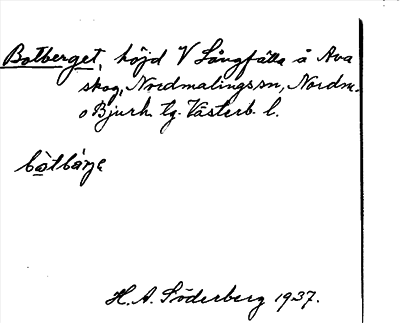 Botberget, höjd V Långfälla å Ava
skog, Nordmalings sn, Nordm.
o Bjurh. tg. Västerb. l.
bo̠tbærjɛ
H. A. Söderberg 1937.